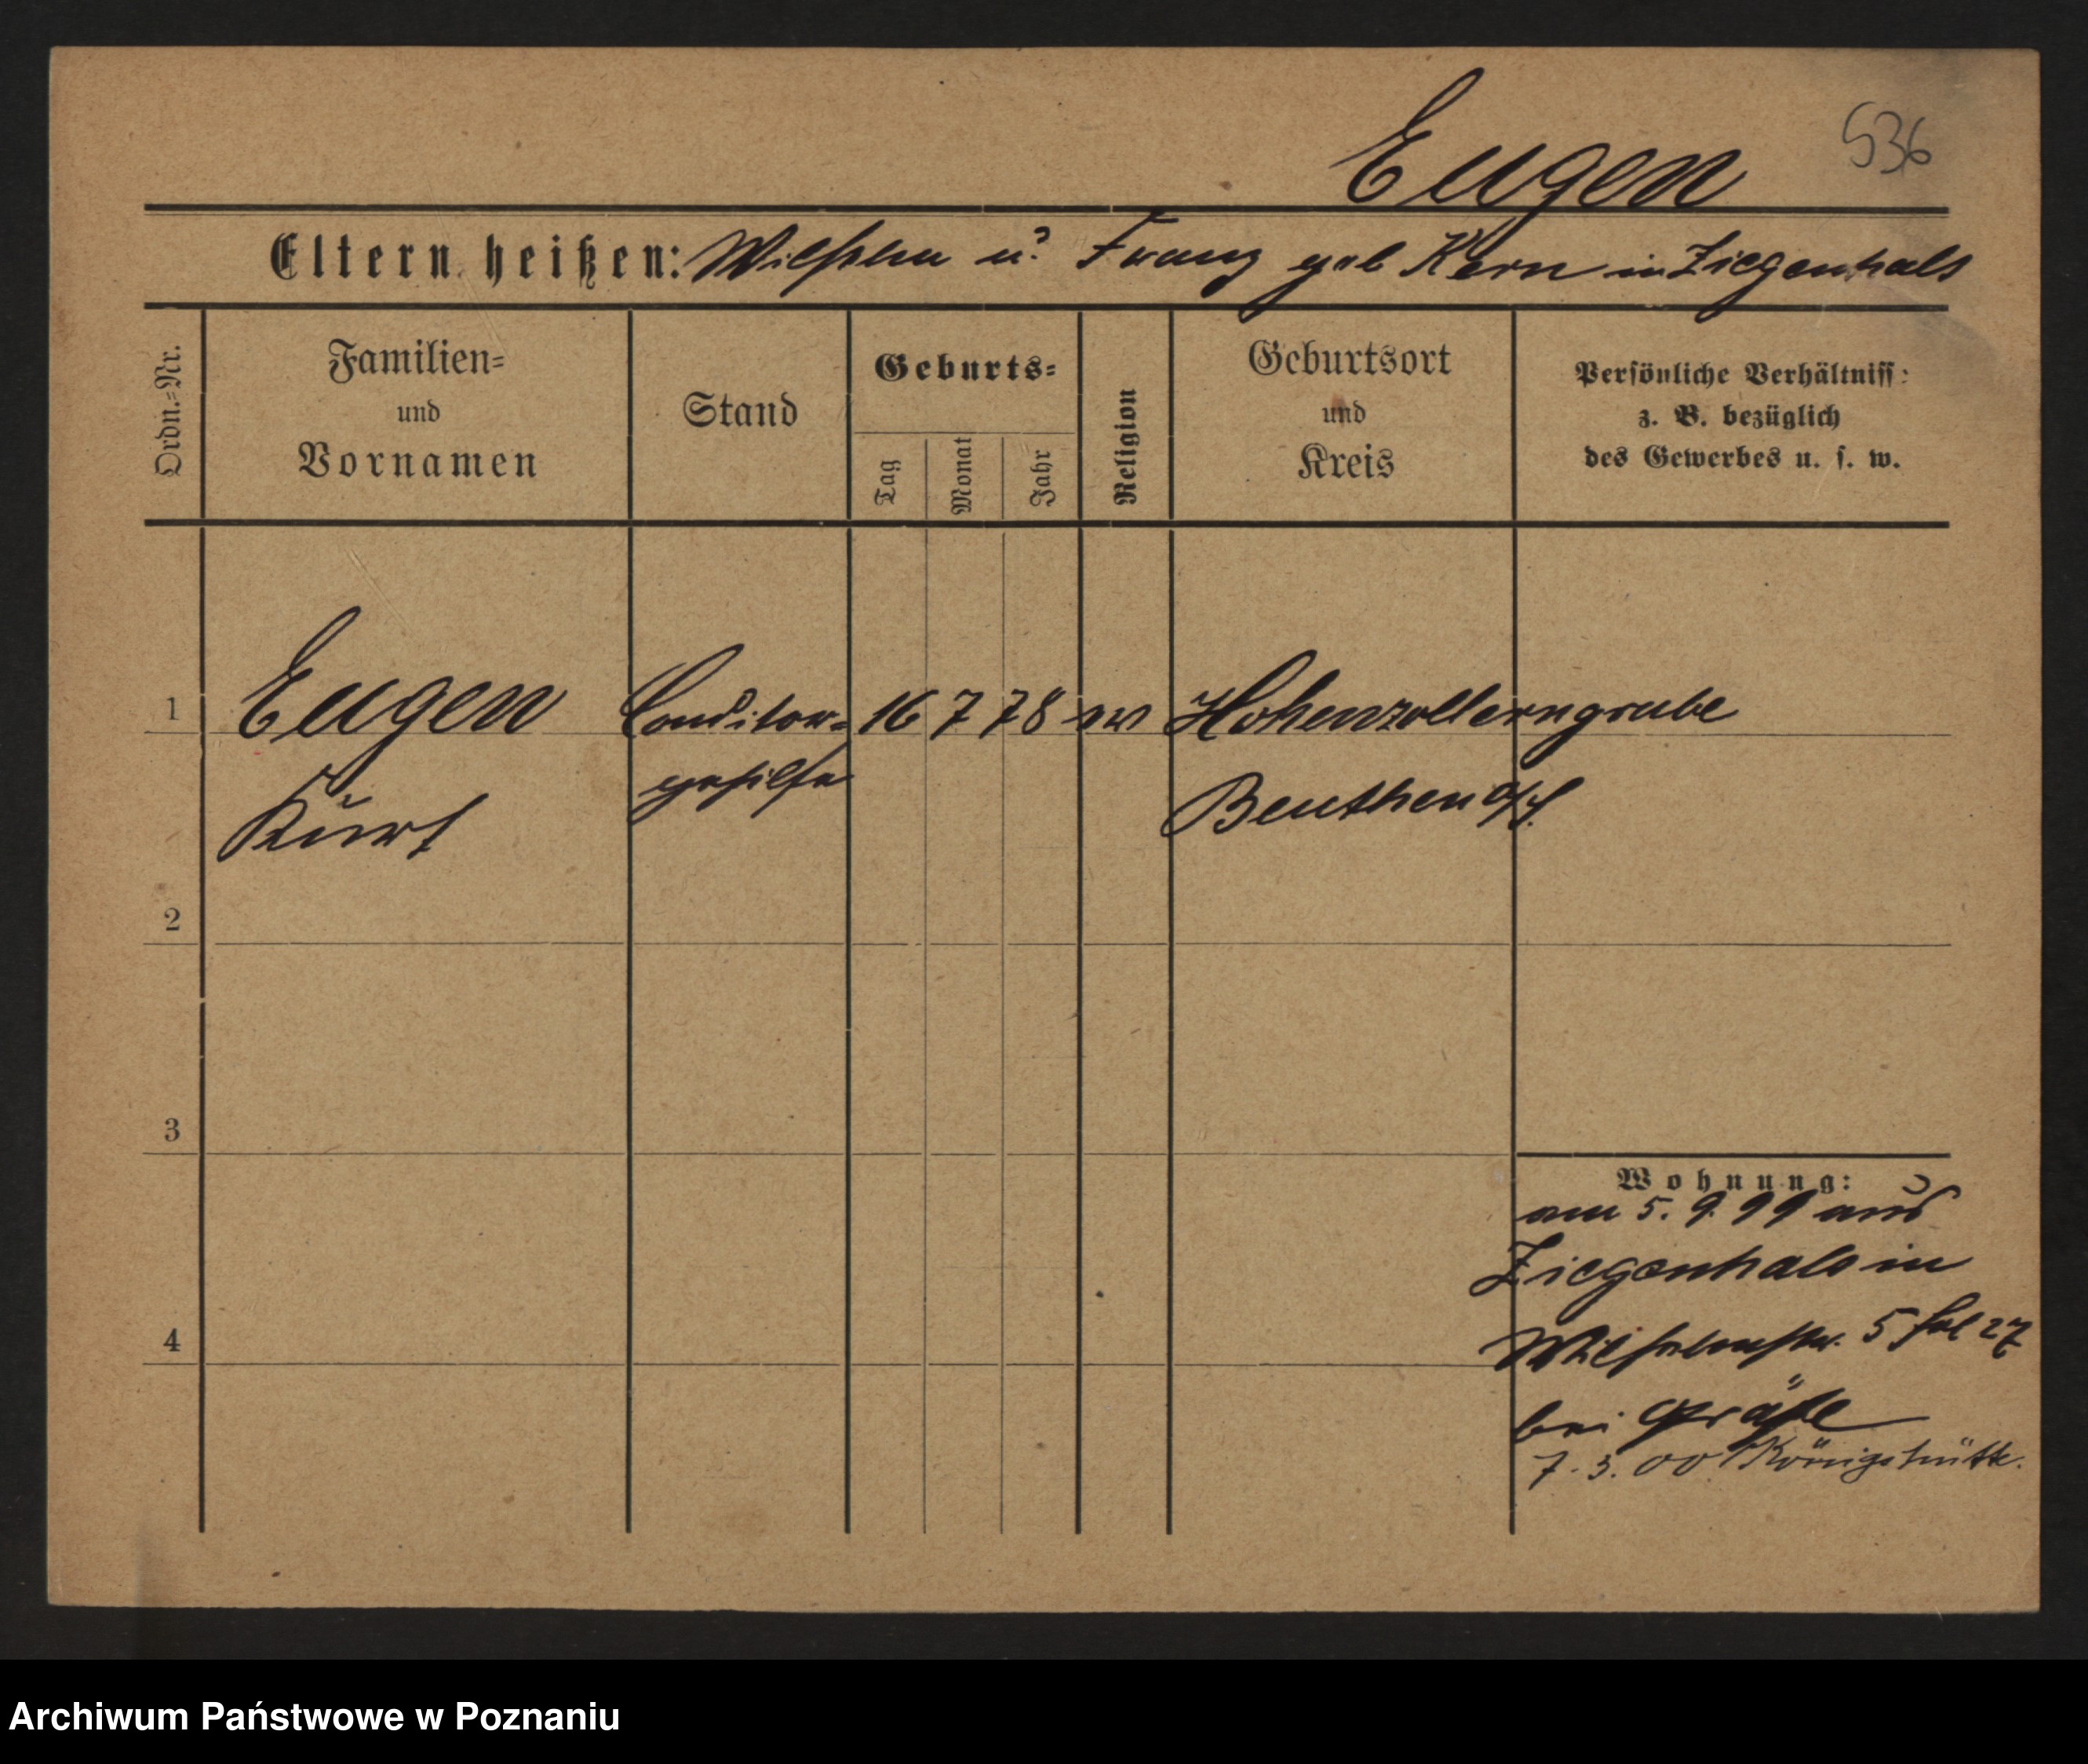 536
Eugen
Eltern heißen: Wilhelm u. Franz geb Kern in Ziegenhals
Ordn.-Nr.
Familien-
und
Vornamen
Stand
Geburts-
Tag
Monat
Jahr
Religion
Geburtsort
und
Kreis
Persönliche Verhältniss:
z. B. bezüglich
des Gewerbes u. s. w.
1 Eugen Conditor- 16 7 78 ev Hohenzollerngrube
Kurt gehilfe Beuthen o/S.
2
3
4
Wohnung:
am 5. 9. 99 aus
Ziegenhals in
Wilhelmstr. 5 27
bei
7. 3. 00 Königshütte.
Archiwum Państwowe w Poznaniu